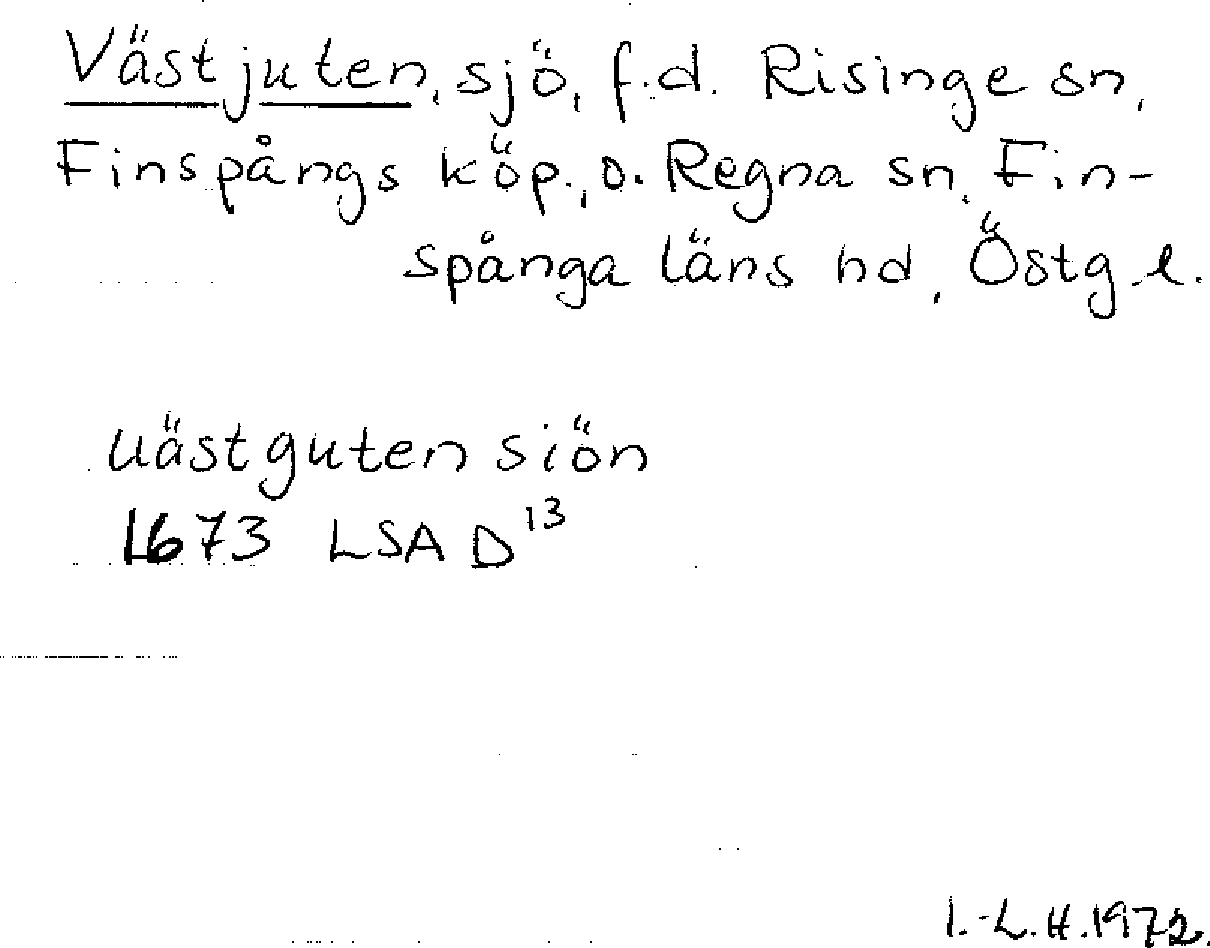 Västjuten, sjö, f.d. Risinge sn,
Finspångs köp., o. Regna sn, Fin-
spånga läns hd, Östg.l.
Uästguten siön
1673 LSA D¹³
I.-L.H. 1972.